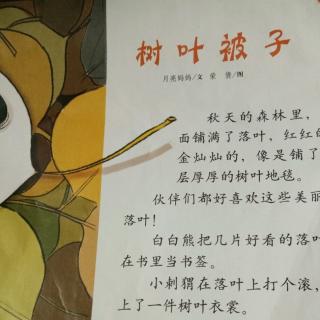 树叶被子
月亮妈妈/文 荣 赟/图
秋天的森林里，
面铺满了落叶，红红的
金灿灿的，像是铺了
层厚厚的树叶地毯。
伙伴们都好喜欢这些美丽
落叶！
白白熊把几片好看的落叶
在书里当书签。
小刺猬在落叶上打个滚，
上了一件树叶衣裳。